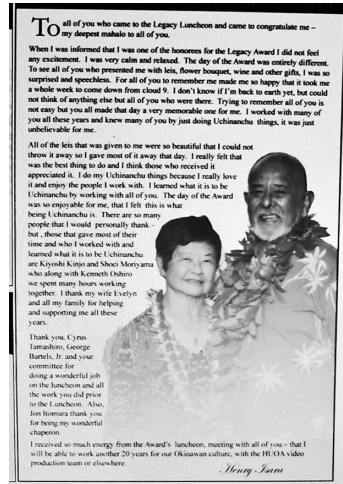 To all of you who came to the Legacy Luncheon and came to congratulate me –
my deepest mahalo to all of you.
When I was informed that I was one of the honorees for the Legacy Award I did not feel
any excitement. I was very calm and relaxed. The day of the Award was entirely different.
To see all of you who presented me with leis, flower bouquet, wine and other gifts, I was so
surprised and speechless. For all of you to remember me made me so happy that it took me
a whole week to come down from cloud 9. I don't know if I'm back to earth yet, but could
not think of anything else but all of you who were there. Trying to remember all of you is
not easy but you all made that day a very memorable one for me. I worked with many of
you all these years and knew many of you by just doing Uchinanchu things, it was just
unbelievable for me.
All of the leis that was given to me were so beautiful that I could not
throw it away so I gave most of it away that day. I really felt that
was the best thing to do and I think those who received it
appreciated it. I do my Uchinanchu things because I really love
it and enjoy the people I work with. I learned what it is to be
Uchinanchu by working with all of you. The day of the Award
was so enjoyable for me, that I felt this is what
being Uchinanchu is. There are so many
people that I would personally thank –
but, those that gave most of their
time and who I worked with and
learned what it is to be Uchinanchu
are Kiyoshi Kinjo and Shoei Moriyama
who along with Kenneth Oshiro
we spent many hours working
together. I thank my wife Evelyn
and all my family for helping
and supporting me all these
years.
Thank you, Cyrus
Tamashiro, George
Bartels, Jr. and your
committee for
doing a wonderful job
on the luncheon and all
the work you did prior
to the Luncheon. Also,
Jon Itomura thank you
for being my wonderful
chaperon.
I received so much energy from the Award's luncheon, meeting with all of you – that I
will be able to work another 20 years for our Okinawan culture, with the HUOA video
production team or elsewhere.
Henry Isara